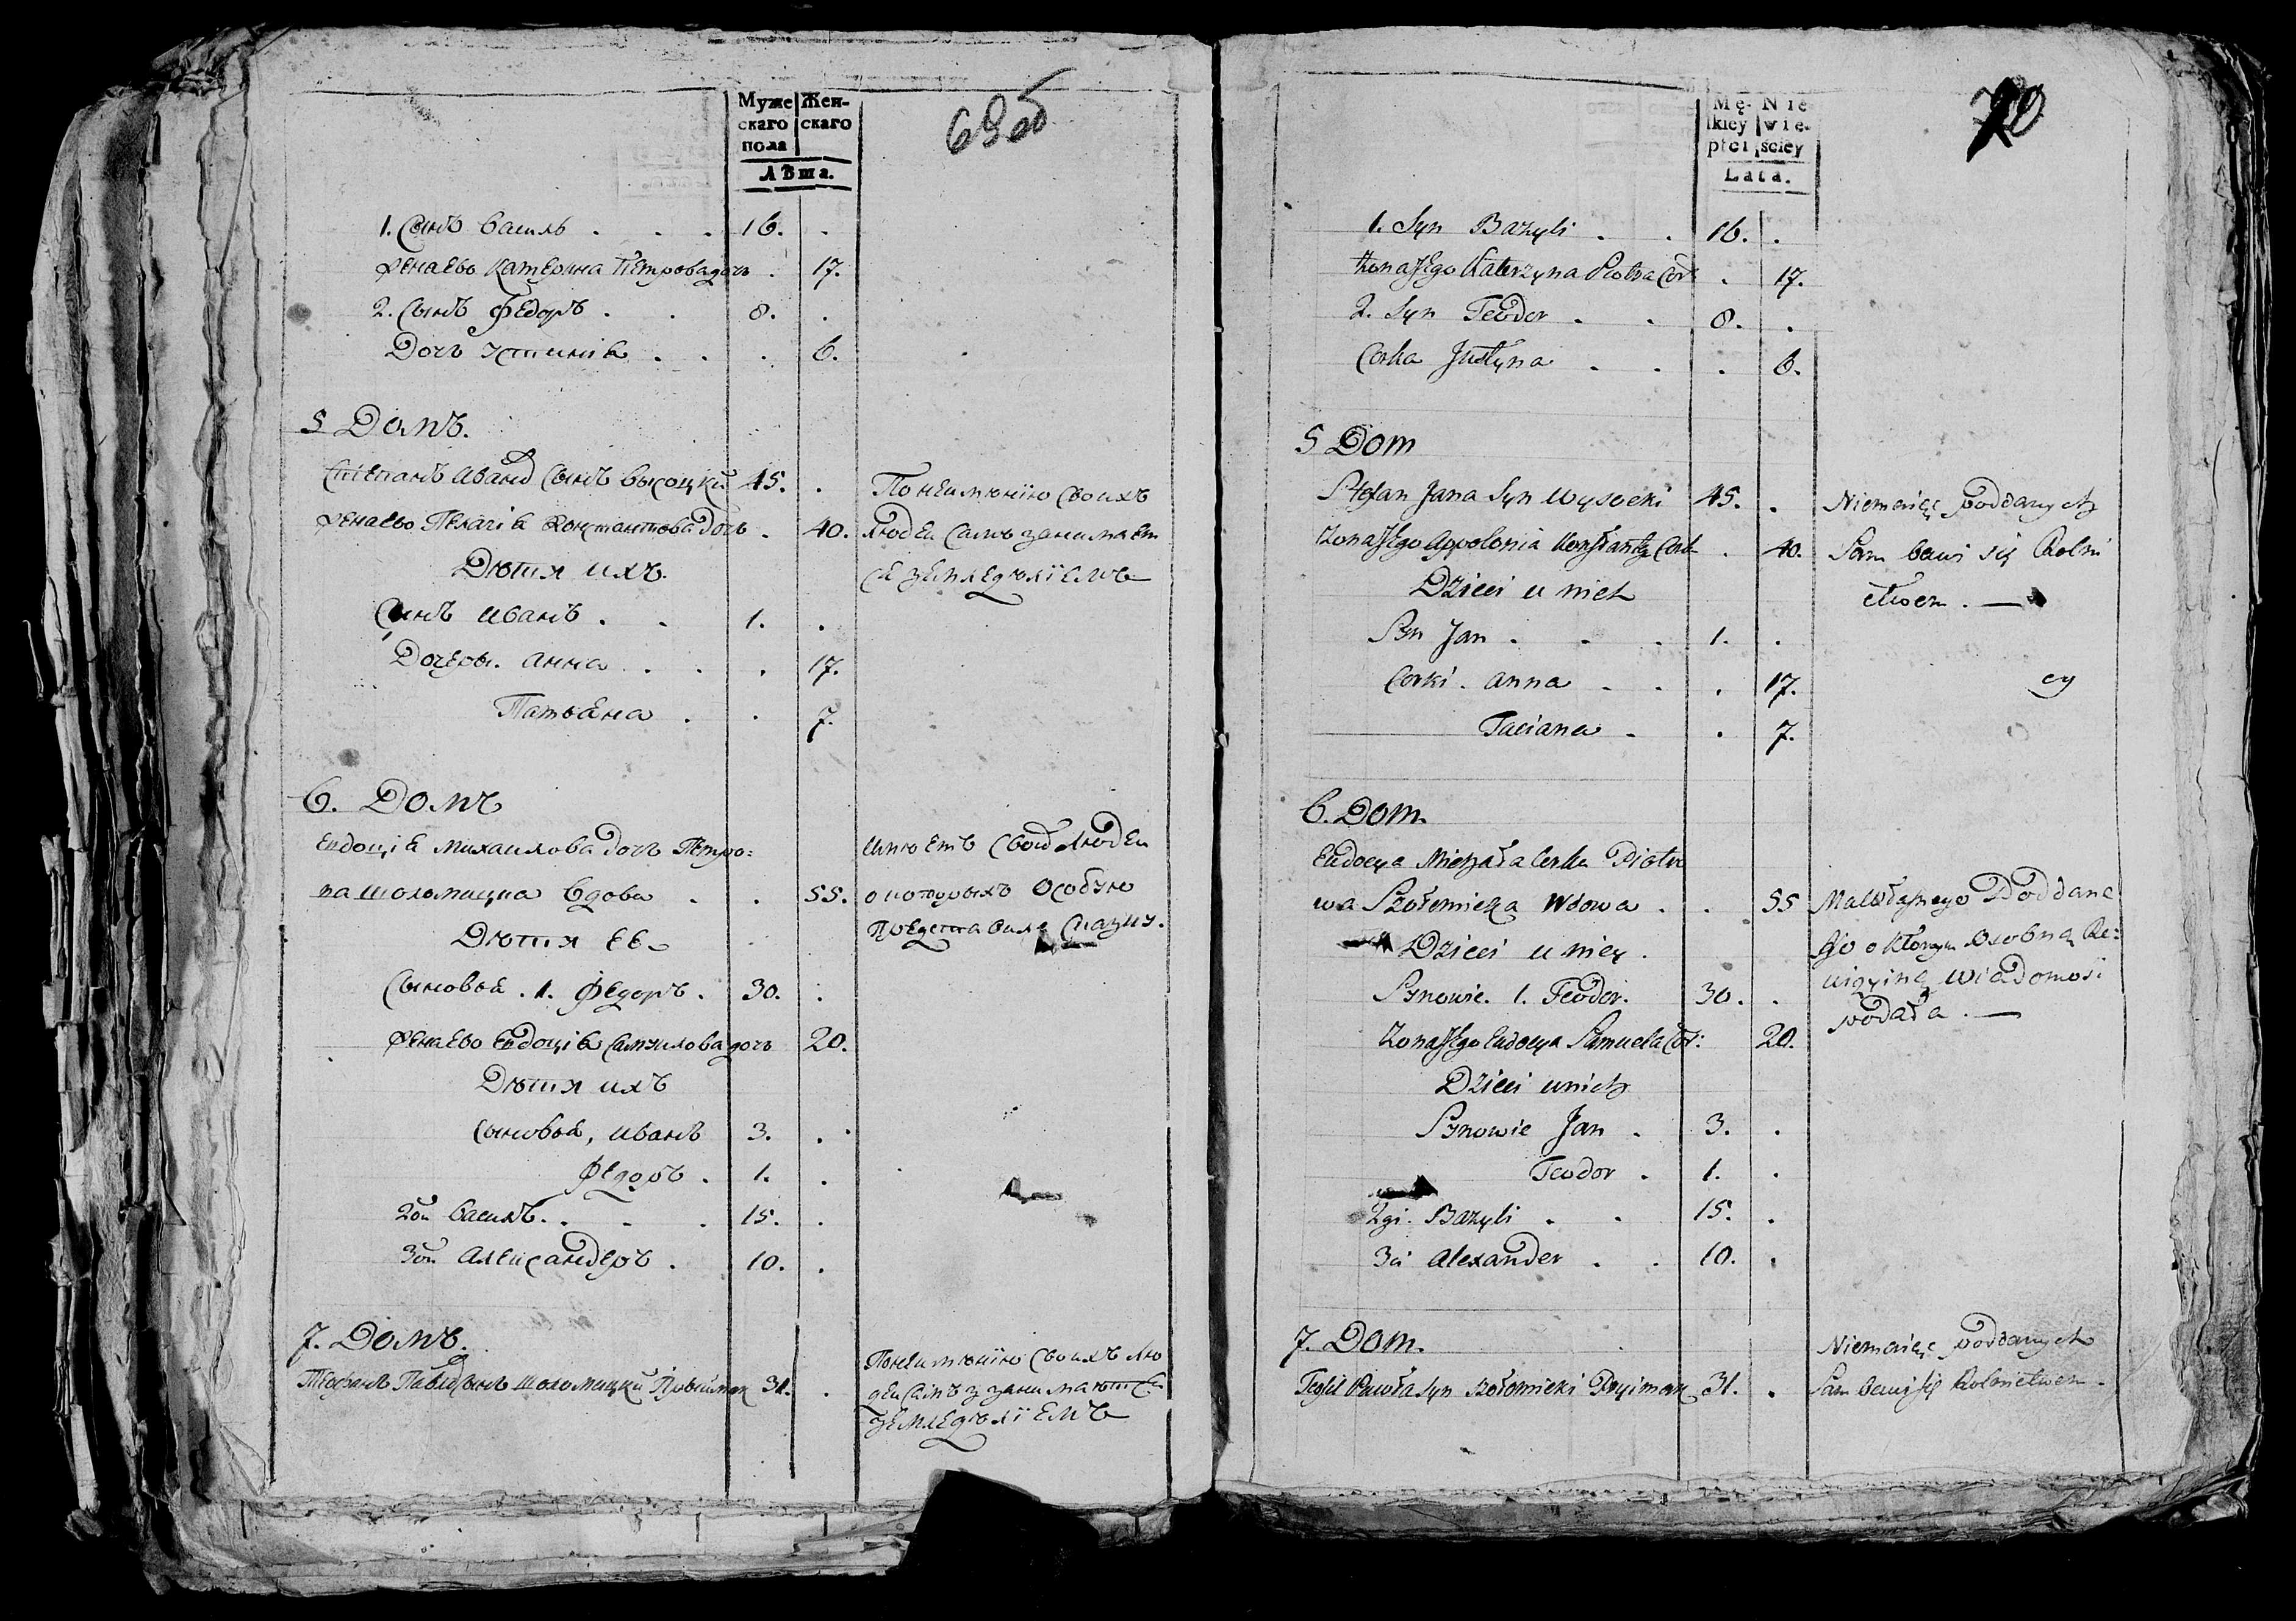 Муже Жен-
скаго скаго
пола
Лѣта.
69об
1. Сынъ Василь . . . 16. .
Жена Его Катерина Петрова дочь . 17.
2. Сынъ Федоръ . . 8. .
Дочь Устинія . . . 6.
5 Домъ.
Степанъ Иванъ Сынъ Высоцкий 45. .
Жена Его Пелагія Константова Дочь . 40.
Дѣти ихъ.
Сынъ Иванъ . . 1. .
Дочеры. Анна . . . 17.
Татьяна . . 7.
По неимѣнію Своихъ
Людей Самъ занимает
се Земледѣліемъ
6. Домъ
Евдоція Михаилова Дочь Петро:
ва Шоломицка Вдова . . 55.
Дѣти Ее
Сыновья . 1. Федоръ . 30. .
Жена Его Евдоція Самуилова дочь 20.
Дѣти ихъ
Сыновья, Иванъ 3. .
Федоръ . 1. .
2ой Василь . . . . 15. .
3ой Александеръ . 10. .
Имѣетъ Своих Людей
о которыхъ Особую
Представила Сказку.
7. Домъ.
Павл Сынъ Шоломицкий Прыймак 31. .
По неимѣнію Своихъ Лю
дей Самъ занимаетсе
Земледѣліемъ
Mę- Nie
kiey wie-
płci ściey
Lata.
70
1. Syn Bazyli . . 16. .
Żona Jego Katerzyna Piotra Cór . 17.
2. Syn Teodor . . 8. .
Corka Justyna . . . 6.
5 Dom
Stefan Jana Syn Wysocki 45. .
Zona Jego Appolonia Konstantego Cork . 40.
Dzieci u nich
Syn Jan . . . 1. .
Corki . Anna . . . 17.
Taciana . . 7.
Niemaiąc poddanych
Sam bawi się Rolni
ctwem . —
cy
6. Dom.
Eudocya Michała Corka Piotro
wa Szołomicka Wdowa . . 55
Dzieci u niey .
Synowie. 1. Teodor. 30. .
Zona Jego Eudocya Samuela Cor: 20.
Dzieci u nich
Synowie Jan . 3. .
Teodor . 1. .
2gi. Bazyli . . 15. .
3ci Alexander . . 10. .
Ma własnego Poddane
go o którym osobną Re:
wizyiną wiadomość
podała . —
7. Dom.
Pawła Syn Szołomicki Pryimak 31. .
Niemaiąc poddanych
Sam bawi się Rolnictwem .